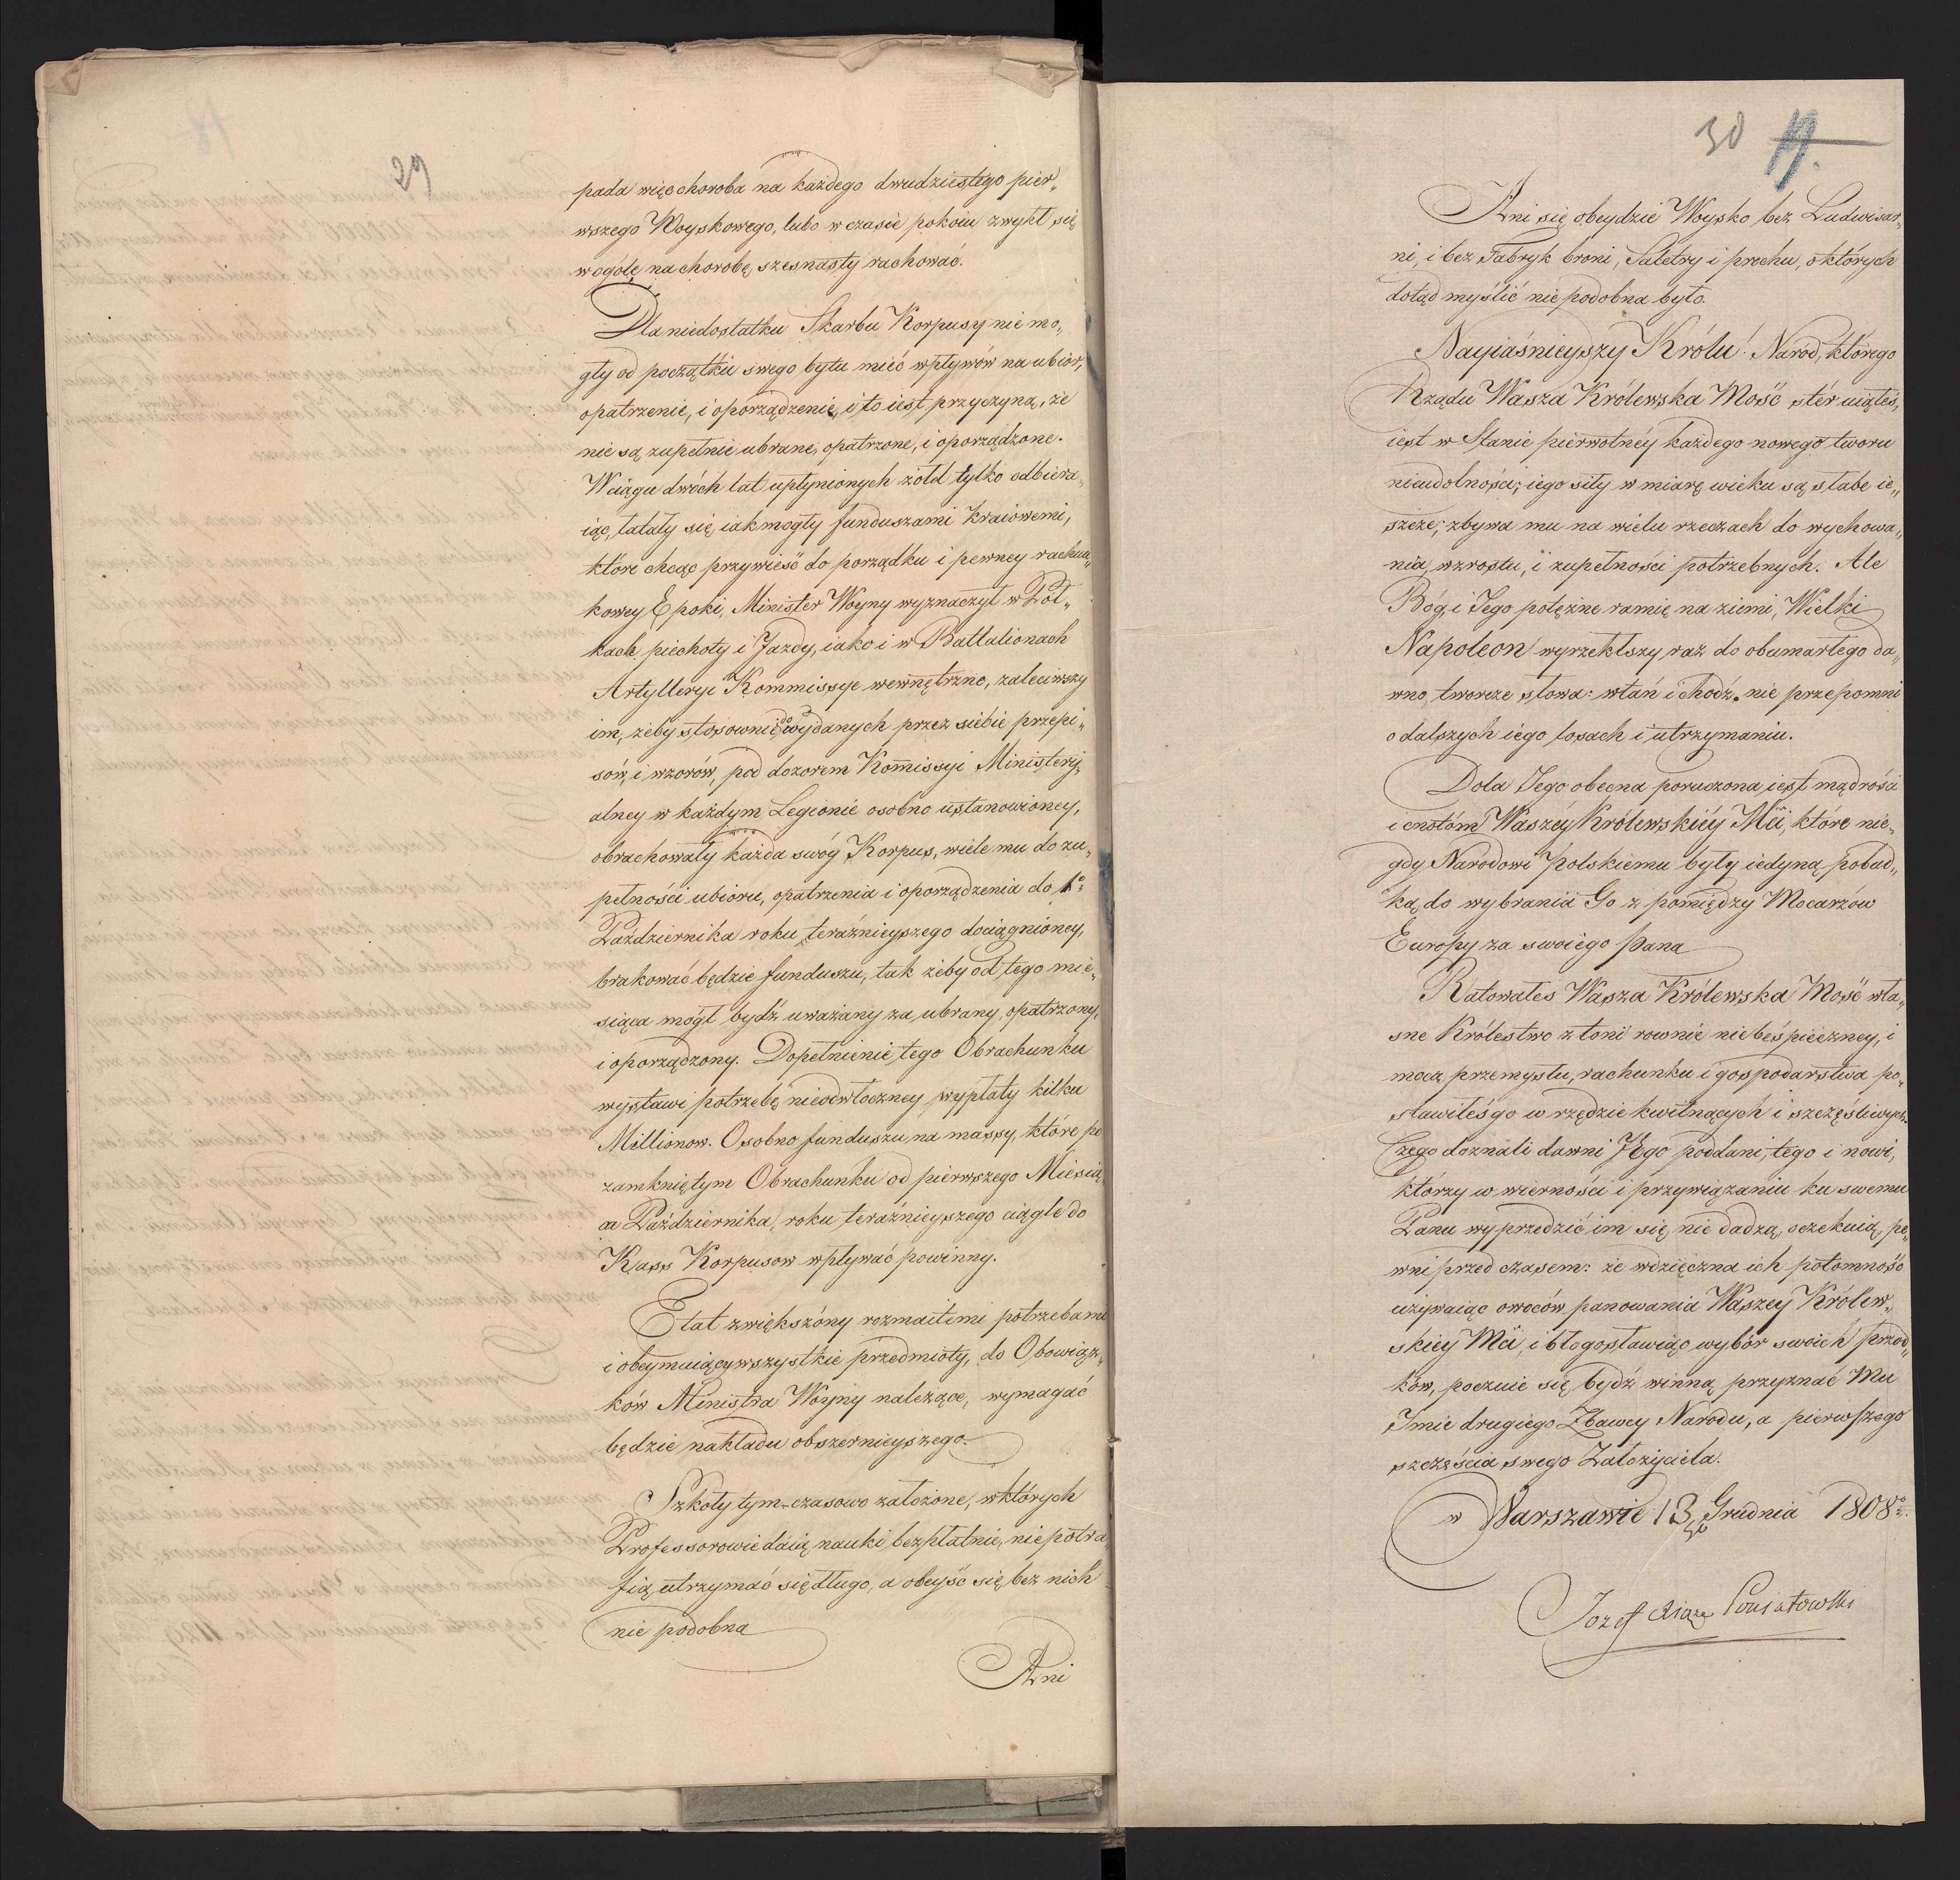 29
pada więc choroba na każdego dwudziestego pier„
wszego Woyskowego, lubo w czasie pokoiu zwykł się
w ogóle na chorobę szesnasty rachować.
Dla niedostatku Skarbu Korpusy nie mo„
gły od początku swego bytu mieć wpływów na ubiór,
opatrzenie, i oporządzenie, i to iest przyczyną, że
nie są zupełnie ubrane, opatrzone, i oporządzone.
W ciągu dwóch lat upłynionych żołd tylko odbiera„
iąc, łatały się iak mogły funduszami kraiowemi,
które chcąc przywieść do porządku i pewney rachun„
kowey Epoki, Minister Woyny wyznaczył w Puł„
kach piechoty i Jazdy, iako i w Battalionach
Artylleryi Kommissye wewnętrzne, zaleciwszy
im, żeby stosownie do wydanych przez siebie przepi„
sów, i wzorów, pod dozorem Kommissyi Ministery„
alney w każdym Legionie osobno ustanowioney,
obrachowały każda swóy Korpus, wiele mu do zu„
pełności ubioru, opatrzenia i oporządzenia do 1º
Października roku teraźnieyszego dociągnioney,
brakować będzie funduszu, tak żeby od tego mie„
siąca mógł bydź uważany za ubrany, opatrzony,
i oporządzony. Dopełnienie tego Obrachunku
wystawi potrzebę nieodwłoczney wypłaty kilku
Millionow. Osobno funduszu na massy, które po
zamkniętym Obrachunku od pierwszego Miesią„
ca Października, roku teraźnieyszego ciągle do
Kass Korpusow wpływać powinny.
Etat zwiększóny rozmaitemi potrzebami
i obeymuiący wszystkie przedmioty, do Obowiąz„
ków Ministra Woyny należące, wymagać
będzie nakładu obszernieyszego.
Szkoły tym-czasowo założone, w których
Professorowie daią nauki bezpłatnie, nie potra„
fią utrzymać się długo, a obeyść się bez nich
nie podobna
Ani
30 19.
Ani się obeydzie Woysko bez Ludwisar„
ni, i bez Fabryk broni, Saletry i prochu, o których
dotąd myślić nie podobna było.
Nayiaśnieyszy Królu! Naród, którego
Rządu Wasza Królewska Mość stér uiąłeś,
iest w Stanie pierwotnéy każdego nowego tworu
nieudolności; iego siły w miarę wieku są słabe ie„
szcze; zbywa mu na wielu rzeczach do wychowa„
nia, wzrostu, i zupełności potrzebnych. Ale
Bóg, i Jego potężne ramię na ziemi, Wielki
Napoleon wyrzekłszy raz do obumarłego da„
wno, tworcze słowa: wstań i chodź. nie przepomni
o dalszych iego losach i utrzymaniu.
Dola Jego obecna poruczona iest mądrości
i cnotóm Waszéy Królewskiéy Mći, które nie„
gdy Narodowi Polskiemu były iedyną pobud„
ką do wybrania Go z pomiędzy Mocarzów
Europy za swoiego Pana
Ratowałeś Wasza Królewska Mość wła„
sne Królestwo z toni rownie niebeśpieczney, i
mocą przemysłu, rachunku i gospodarstwa po„
stawiłeś go w rzędzie kwitnących i szczęśliwych.
Czego doznali dawni JEgo poddani, tego i nowi,
którzy w wierności i przywiązaniu ku swemu
Panu wyprzedzić im się nie dadzą, oczekuią, pe„
wni przed czasem: że wdzięczna ich potomność
używaiąc owoców panowania Waszey Królew„
skiey Mći, i błogosławiąc wybór swoich przod„
ków, poczuie się bydź winną przyznać Mu
Imie drugiego Zbawcy Narodu, a pierwszego
szczęścia swego Założyciela.
w Warszawie 13 go Grudnia 1808º
Jozef Xiąże Poniatowski